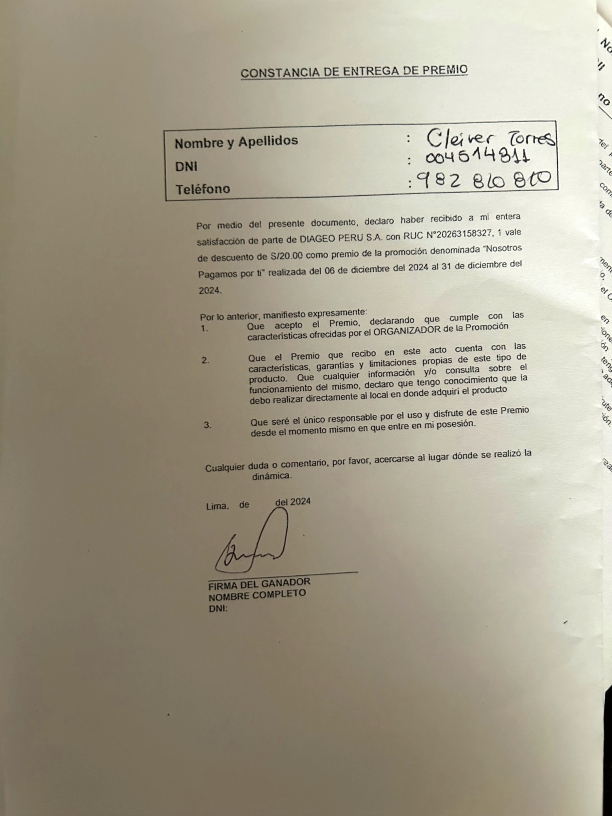 CONSTANCIA DE ENTREGA DE PREMIO
Nombre y Apellidos : Cleiver Torres
DNI : 004514811
Teléfono : 982 810 810
Por medio del presente documento, declaro haber recibido a mi entera
satisfacción de parte de DIAGEO PERU S.A. con RUC N°20263158327, 1 vale
de descuento de S/20.00 como premio de la promoción denominada "Nosotros
Pagamos por ti" realizada del 06 de diciembre del 2024 al 31 de diciembre del
2024.
Por lo anterior, manifiesto expresamente:
1. Que acepto el Premio, declarando que cumple con las
características ofrecidas por el ORGANIZADOR de la Promoción
2. Que el Premio que recibo en este acto cuenta con las
características, garantías y limitaciones propias de este tipo de
producto. Que cualquier información y/o consulta sobre el
funcionamiento del mismo, declaro que tengo conocimiento que la
debo realizar directamente al local en donde adquirí el producto
3. Que seré el único responsable por el uso y disfrute de este Premio
desde el momento mismo en que entre en mi posesión.
Cualquier duda o comentario, por favor, acercarse al lugar dónde se realizó la
dinámica.
Lima, de del 2024
FIRMA DEL GANADOR
NOMBRE COMPLETO
DNI: